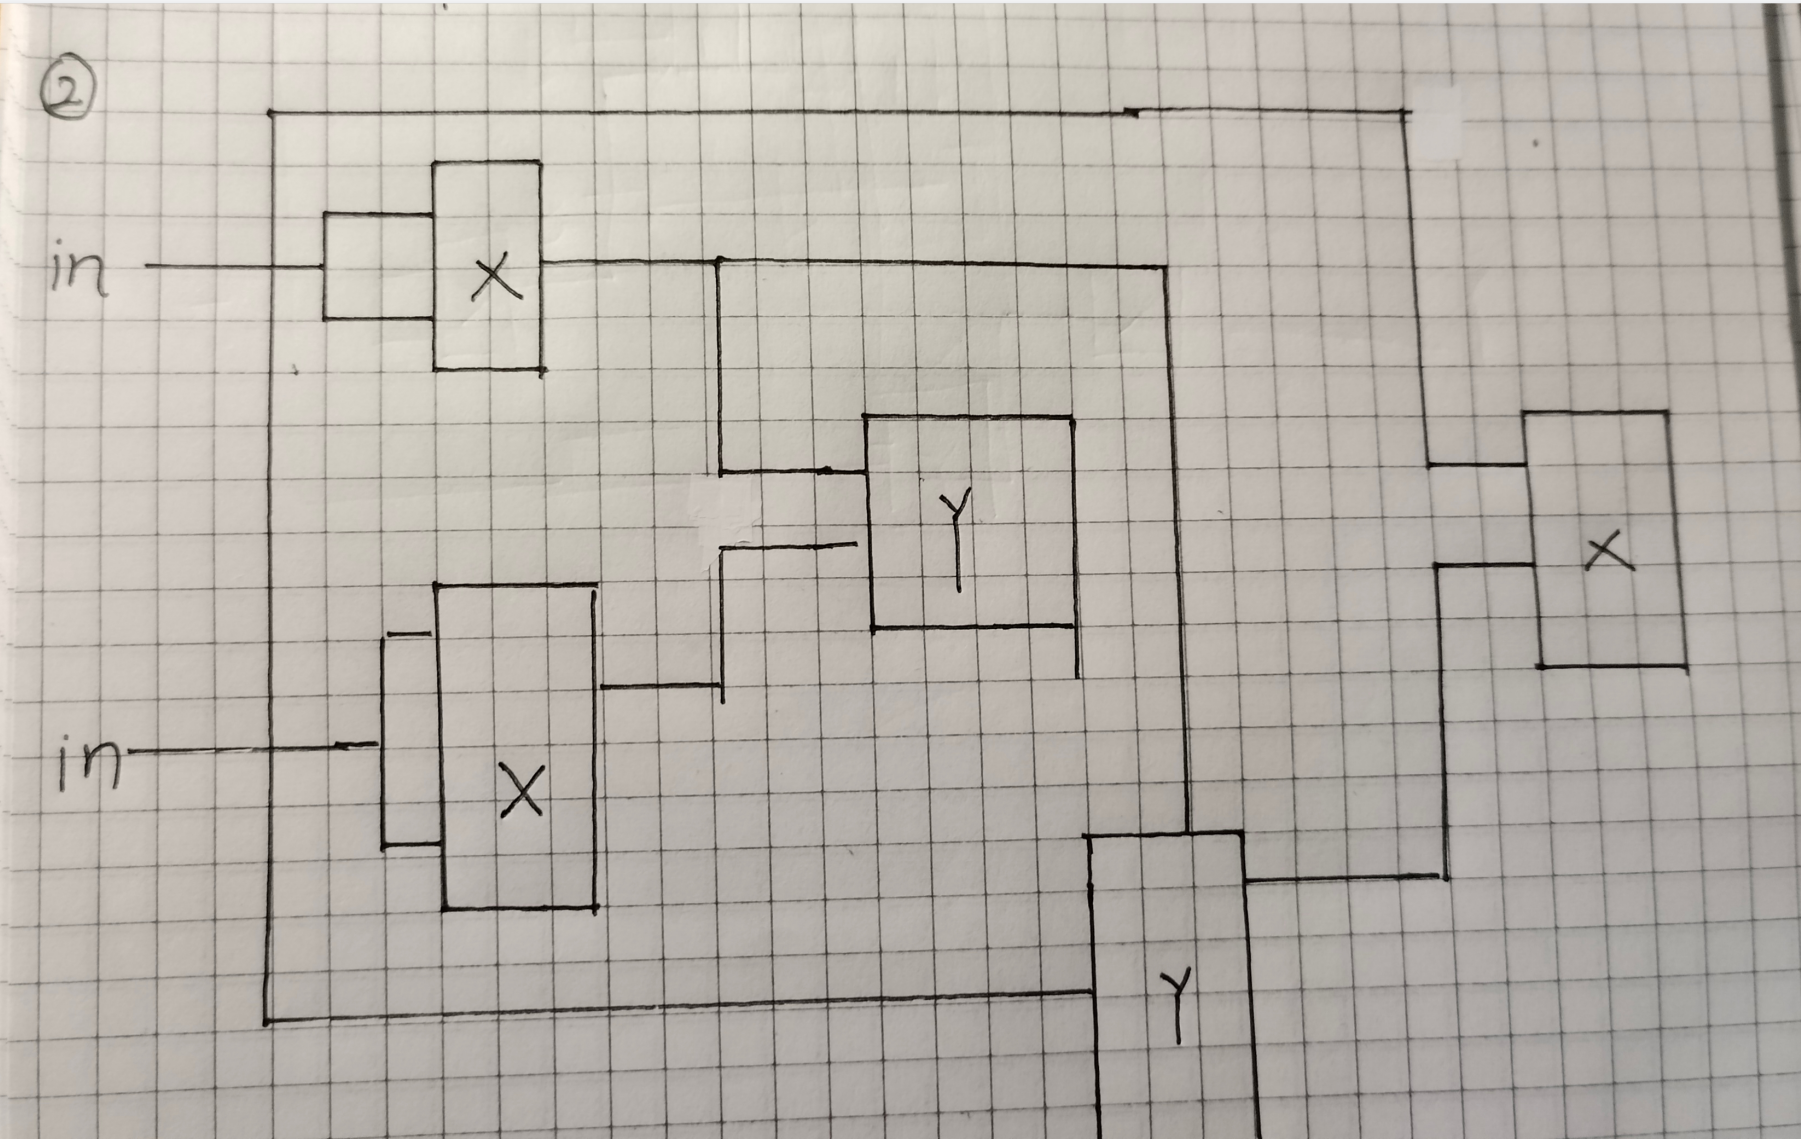 2
in
X
Y
X
X
in
Y